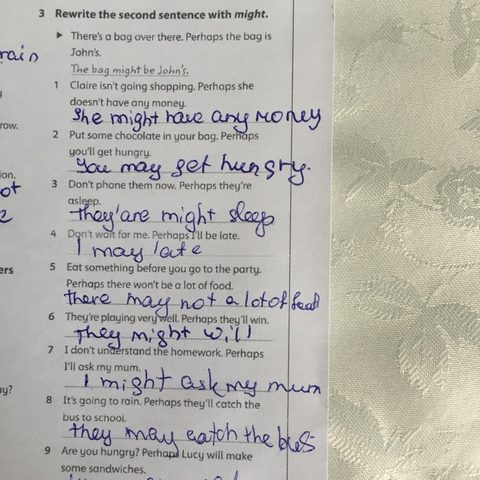 rain
3 Rewrite the second sentence with might.
▶ There's a bag over there. Perhaps the bag is
John's.
The bag might be John's.
1 Claire isn't going shopping. Perhaps she
doesn't have any money.
She might have any money
row.
2 Put some chocolate in your bag. Perhaps
you'll get hungry.
You may get hungry.
ion.
3 Don't phone them now. Perhaps they're
asleep.
ot
they'are might sleep
4 Don't wait for me. Perhaps I'll be late.
I may late
ers
5 Eat something before you go to the party.
Perhaps there won't be a lot of food.
there may not a lot of food
6 They're playing very well. Perhaps they'll win.
They might will
7 I don't understand the homework. Perhaps
I'll ask my mum.
I might ask my mum
ay?
8 It's going to rain. Perhaps they'll catch the
bus to school.
they may catch the bus
9 Are you hungry? Perhaps Lucy will make
some sandwiches.